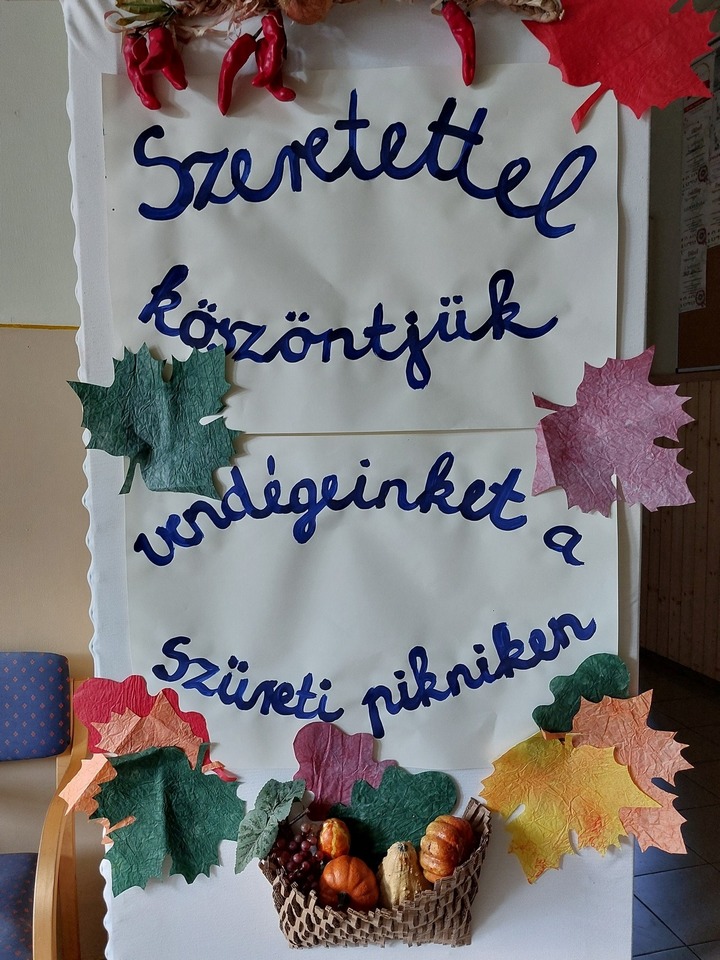 Szeretettel
köszöntjük
vendégeinket a
Szüreti pikniken